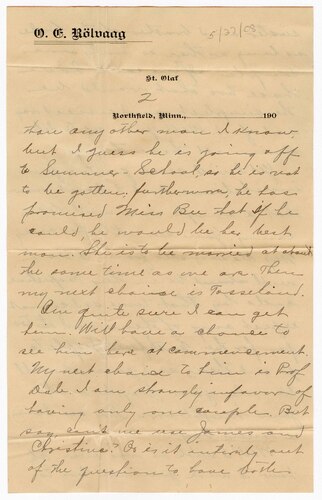 O. E. Rölvaag
5/27/08
St. Olaf
2
Northfield, Minn., 190
than any other man I know
but I guess he is going off
to Summer-School, so he is not
to be gotten, furthermore, he has
promised Miss Bee that if he
could, he would be her best
man. She is to be married at about
the same time as we are. Then
my next chance is Tosseland.
Am quite sure I can get
him. Will have a chance to
see him here at commencement.
My next chance to him is Prof.
Dale. I am strongly in favor of
having only one couple. But
say can't we use James and
Christine? Or is it entirely out
of the question to have both